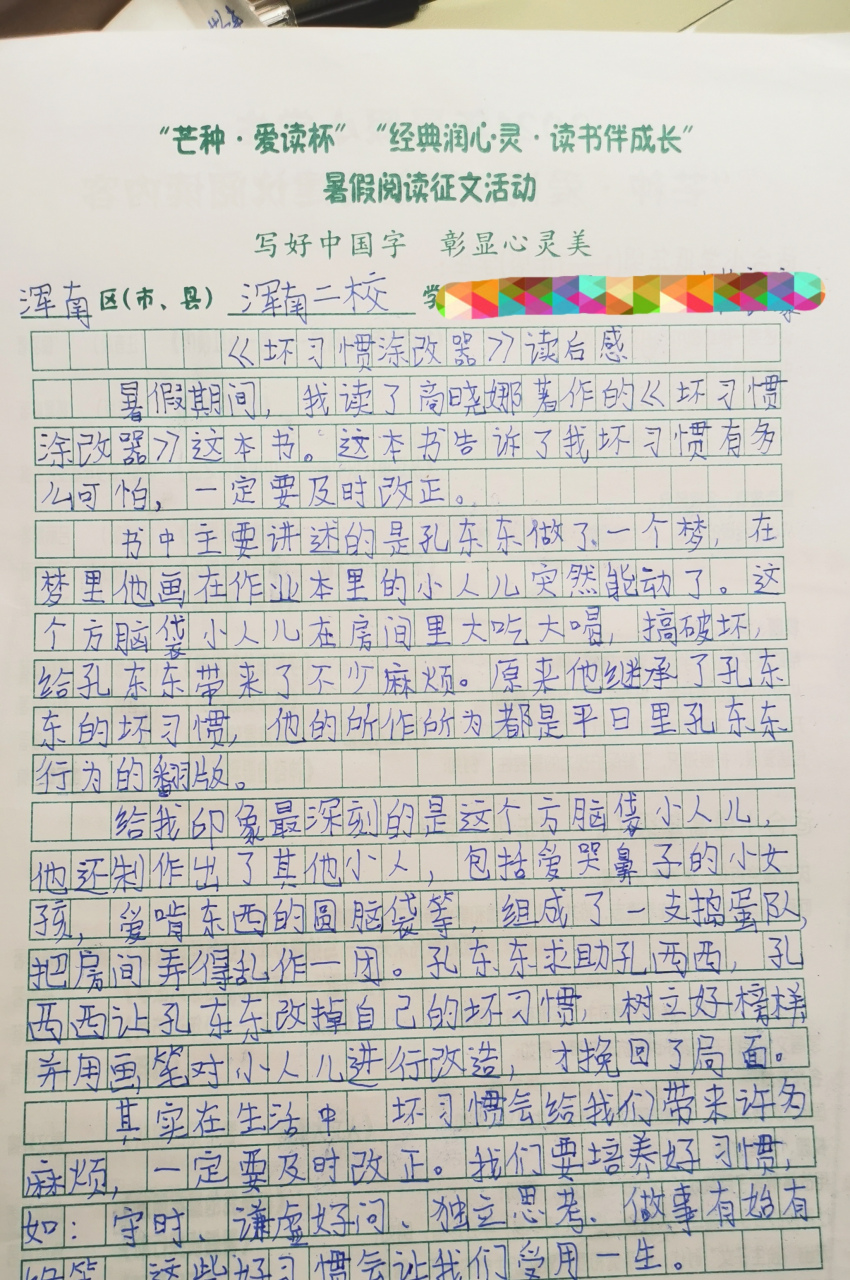 “芒种·爱读杯”“经典润心灵·读书伴成长”
暑假阅读征文活动
写好中国字 彰显心灵美
浑南区(市、县) 浑南二校 学
《坏习惯涂改器》读后感
暑假期间，我读了高晓娜著作的《坏习惯
涂改器》这本书。这本书告诉了我坏习惯有多
么可怕，一定要及时改正。
书中主要讲述的是孔东东做了一个梦，在
梦里他画在作业本里的小人儿突然能动了。这
个方脑袋小人儿在房间里大吃大喝，搞破坏，
给孔东东带来了不少麻烦。原来他继承了孔东
东的坏习惯，他的所作所为都是平日里孔东东
行为的翻版。
给我印象最深刻的是这个方脑袋小人儿，
他还制作出了其他小人，包括爱哭鼻子的小女
孩，爱啃东西的圆脑袋等，组成了一支捣蛋队，
把房间弄得乱作一团。孔东东求助孔西西，孔
西西让孔东东改掉自己的坏习惯，树立好榜样
并用画笔对小人儿进行改造，才挽回了局面。
其实在生活中，坏习惯会给我们带来许多
麻烦，一定要及时改正。我们要培养好习惯，
如：守时、谦虚好问、独立思考、做事有始有
这些好习惯会让我们受用一生。